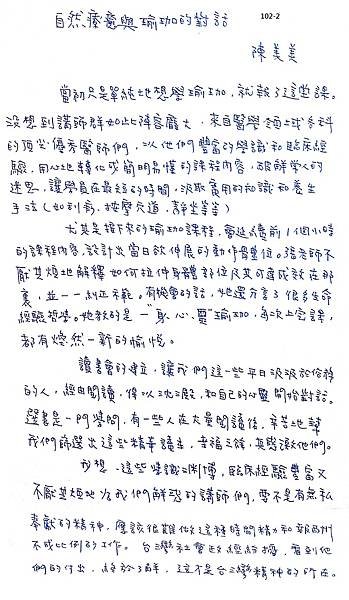 自然療癒與瑜珈的對話
102-2
陳美美
當初只是單純地想學瑜珈，就報了這堂課。
沒想到講師群如此陣容龐大，來自醫學領域各科
的頂尖優秀醫師們，以他們豐富的學識和臨床經
驗，用心地轉化成簡明易懂的課程內容，破解學人的
迷思，讓學員在最短的時間，汲取實用的知識和養生
手法（如刮痧、按摩穴道、靜坐等等）
尤其是接下來的瑜珈課程，會延續前1個小時
的課程內容，設計出當日欲伸展的動作骨架位。張老師不
厭其煩地解釋如何拉伸身體部位及其可達成效在那
裏，並一一糾正示範。有機會的話，她還分享了很多生命
經驗哲學。她教的是一"身、心、靈"瑜珈，每次上完課，
都有煥然一新的愉悅。
讀書會的建立，讓我們這一些平日汲汲於俗務
的人，經由閱讀，得以沈澱，和自己的心靈開始對話。
選書是一門學問，有一些人在大量閱讀後，辛苦地幫
我們篩選出這些精華讀本，幸福之餘，真感激他們。
我想，這些學識淵博，臨床經驗豐富又
不厭其煩地為我們解惑的講師們，要不是有無私
奉獻的精神，應該很難做這種時間精力和報酬
不成比例的工作。台灣社會政經紛擾，看到他
們的付出，終於了解，這不是台灣精神的所在。